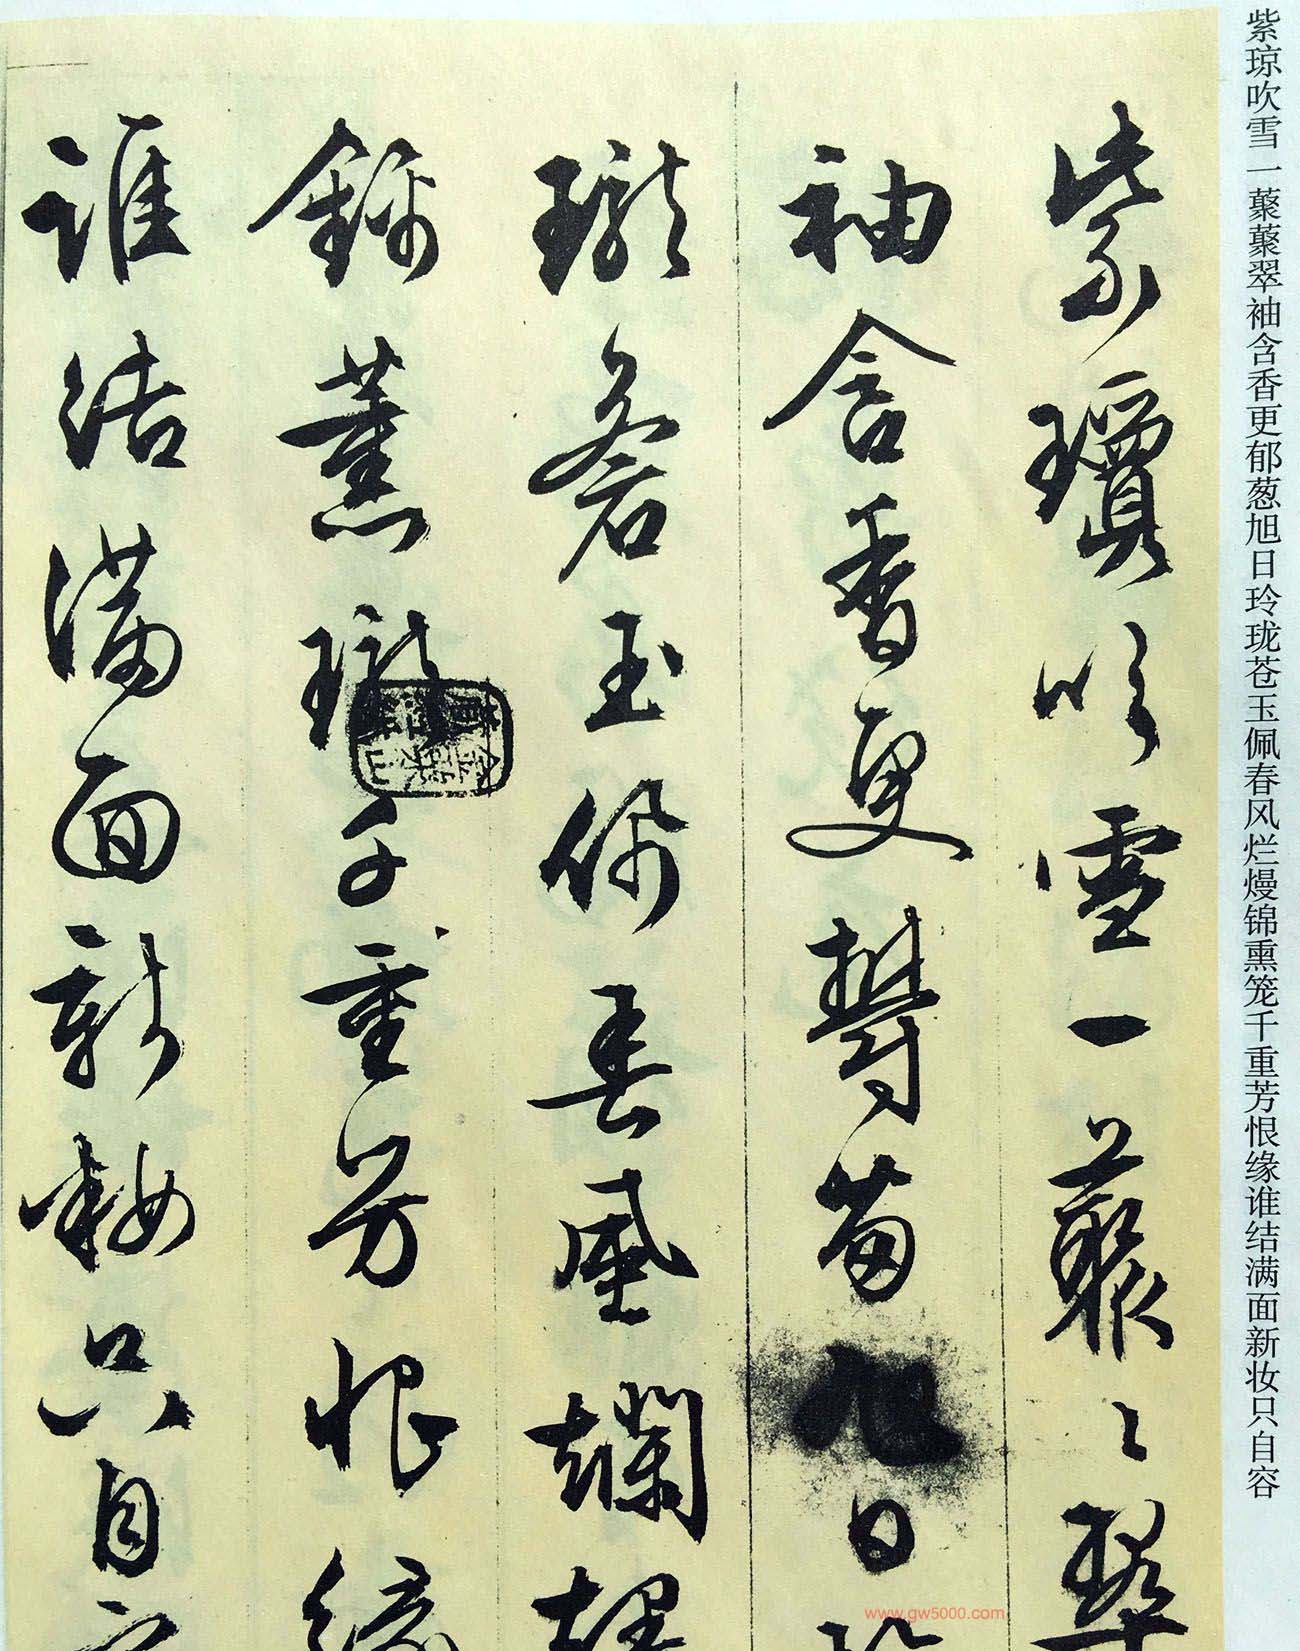 紫琼吹雪一蘂蘂翠袖含香更郁葱旭日玲珑苍玉佩春风烂熳锦熏笼千重芳恨缘谁结满面新妆只自容
紫瓊吹雪一蘂〻翠
袖含香更欝葱旭日玲
瓏蒼玉佩春風爛熳
錦薫瓏千重芳恨緣
誰結滿面新妝只自容
www.gw5000.com